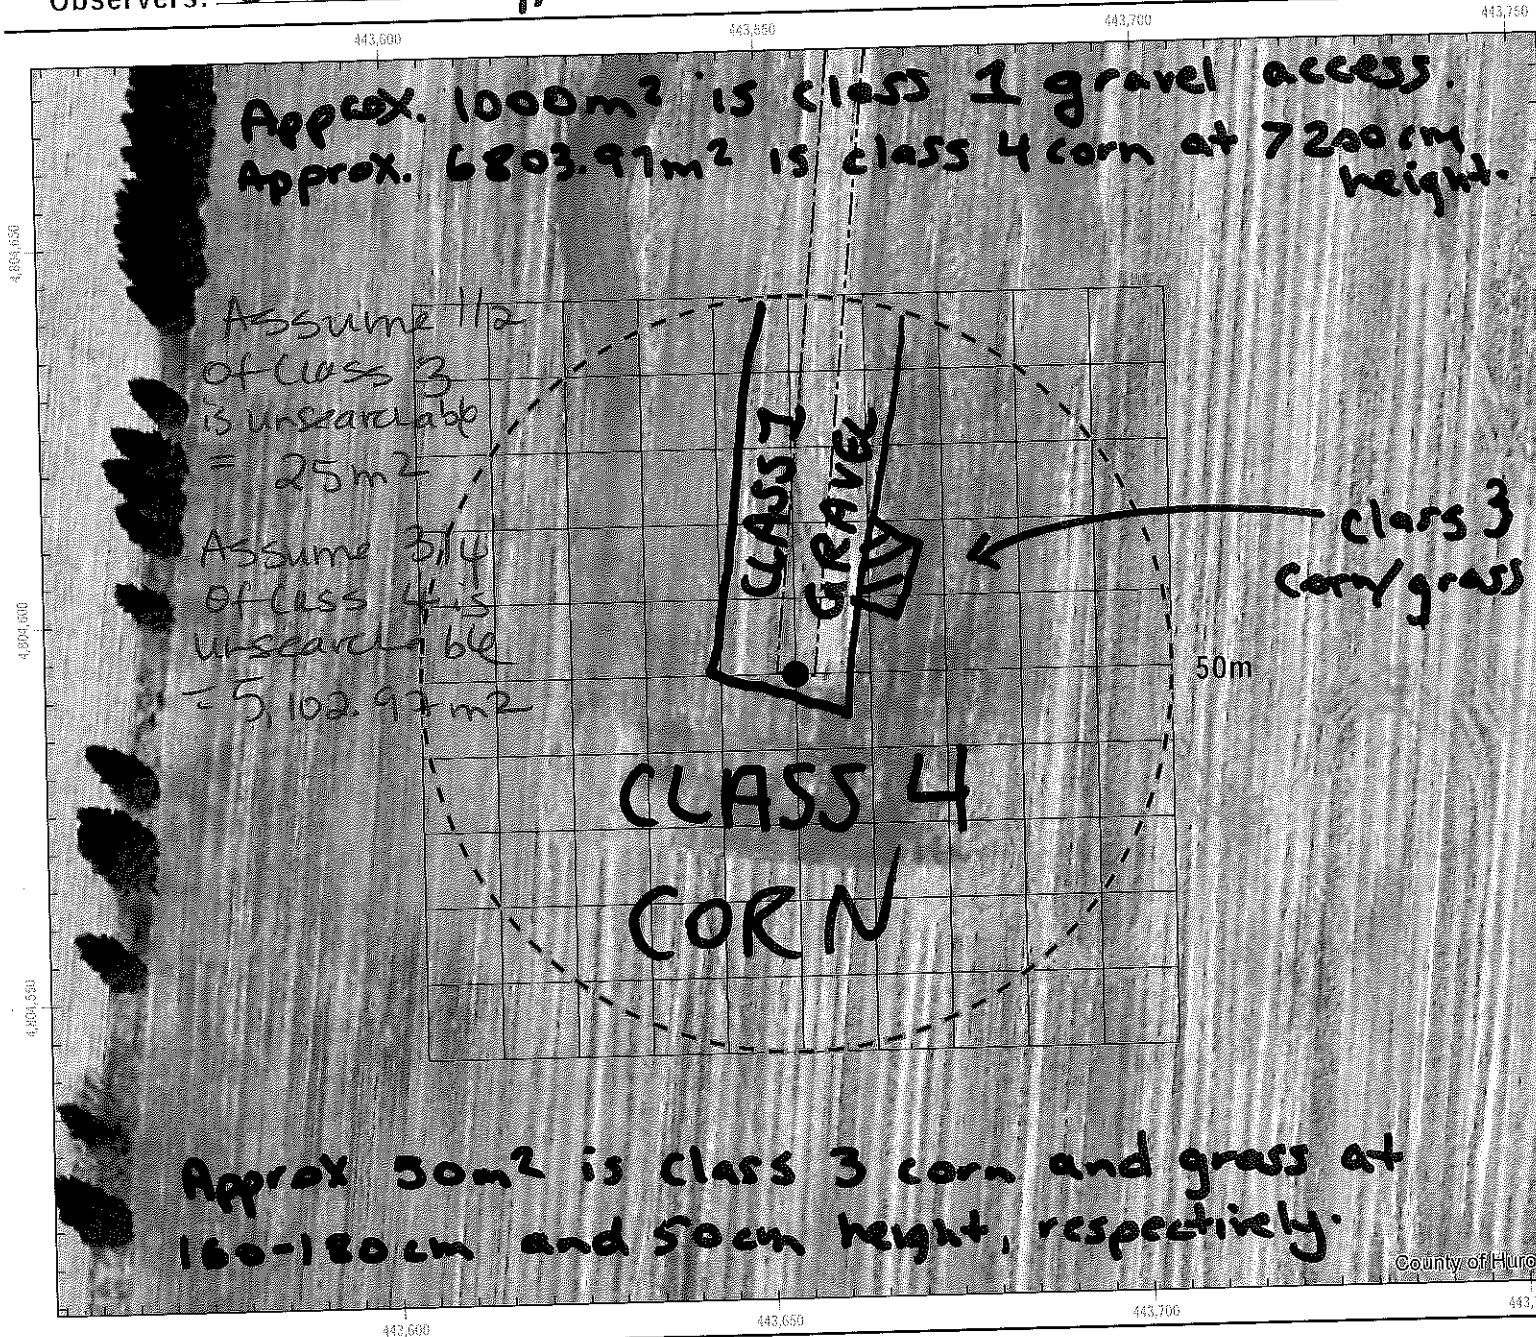 Observers:
443,600
443,650
443,700
443,750
Approx. 1000m² is class 1 gravel access.
Approx. 6803.97m² is class 4 corn at 7200cm
height.
4,804,650
Assume 1/2
of Class 3
is unsearchable
= 25m²
Assume 3/4
of Class 4 is
unsearchable
= 5,102.97m2
CLASS 1
GRAVEL
class 3
corn/grass
4,804,600
50m
CLASS 4
CORN
4,804,550
Approx 50m² is class 3 corn and grass at
160-180cm and 50cm height, respectively.
County of Huro
443,600
443,650
443,700